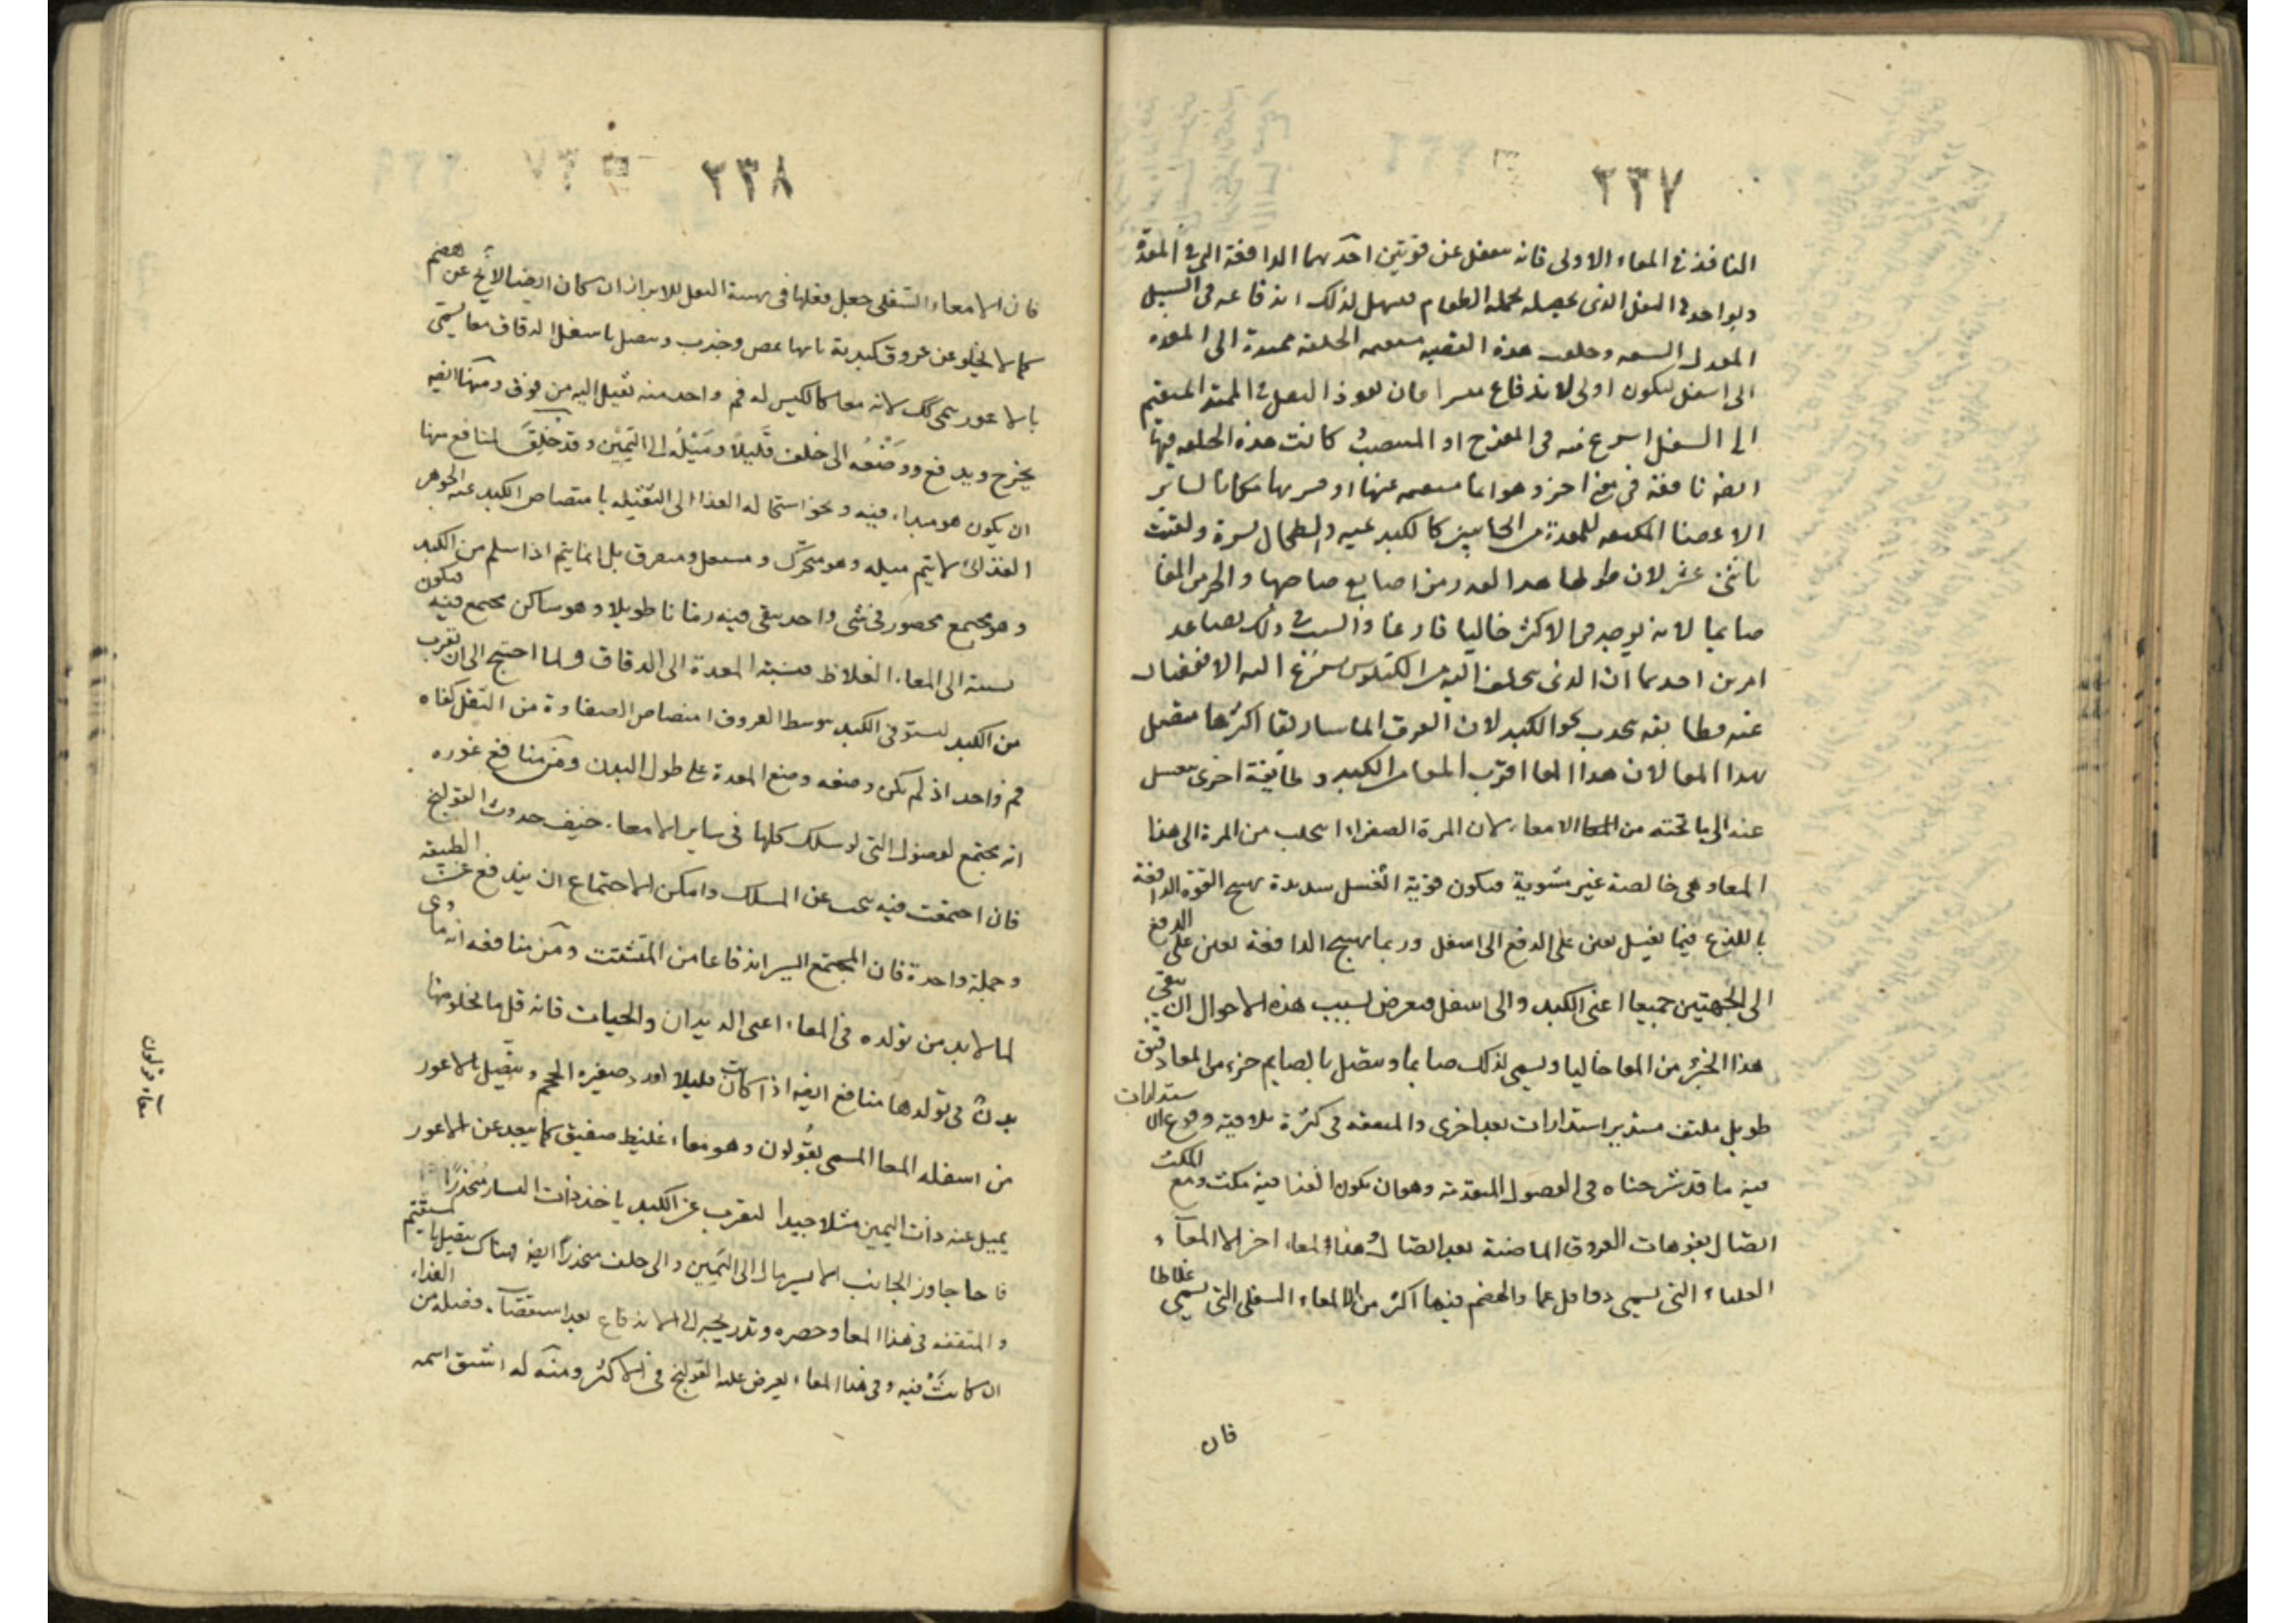 ٢٣٧
النافذ فى المعاء الاولى فانه ينفعل عن قوتين احدهما الدافعة التى فى المعدة
ويواحد فى الثقل الذى يحصله بجملة الطعام فيسهل لذلك اندفاعه فى السبيل
المعتدل السعه وخلقت هذه القصبه مستقيمه الخلقة ممتدة الى المعده
الى اسفل ليكون اولى لاندفاع متيسرا فان نفوذ الثقل فى الممتد المستقيم
الى السفل اسرع منه فى المعوج او المنتصب كانت هذه الخلقه فيها
ايضه نافعة فى معنى اخر وهو انها مستقيمه عنها او فسر بها مكانا لساير
الاعضا المكتنفه للمعدة من الجانبين كالكبد يمينه والطحال يسرة ولقبت
باثنى عشر لان طولها هذا القدر من اصابع صاحبها والجزء من المعا
صايما لانه يوجد فى الاكثر خاليا فارغا والسبب فى ذلك تعاضد
امرين احدهما ان الذى ينجلب اليه من الكيلوس يسرع اليه الانفصال
عنه فطايفه تنجذب نحو الكبد لان العروق الماساريقا اكثرها متصل
بهذا المعا لان هذا المعا اقرب المعا من الكبد وطايفة اخرى تغسل
عنه الى ما تحته من الامعاء لان المرة الصفراء تنجلب من المرة الى هذا
المعا وهى خالصة غير مشوبة فيكون قوية الغسل شديدة تهيج القوة الدافعة
باللذع فيما يغسل يعين على الدفع الى اسفل وربما يهيج الدافعة يعين على الدفع
الى الجهتين جميعا اعنى الكبد والى اسفل فيعرض بسبب هذه الاحوال ان يبقى
هذا الجزء من المعا خاليا ويسمى لذلك صايما ويتصل بالصايم جزء من المعا دقيق
طويل ملتف مستدير استدارات بعد اخرى والمنفعه فى كثرة تلافيفه وقوع الاستدارات
فيه ما قد شرحناه فى الفصول المتقدمه وهو ان يكون الغذا فيه مكث ومع المكث
اتصال بفوهات العروق الماضية بعد اتصال وهذا المعاء اخر الامعاء
العلياء التى يسمى دقاقا والهضم فيها اكثر من الامعاء السفلى التى يسمى غلاظا
فان
٢٣٨
فان الامعاء السفلى جعل فعلها فى تهيية الثقل للابراز ان كان ايضا لا يخ عن هضم
كما لا يخلو عن عروق كبدية ياتيها بمص وجذب ويتصل باسفل الدقاق معا يسمى
بالاعور سمى لك لانه معا كالكيس له فم واحد منه يقبل اليه من فوق ومنها ايضه
يخرج ويدفع ووَضْعُه الى خلف قَليلا ومَيْلُه الى اليَمِيْن وقد خُلِقَ لمنافع منها
ان يكون هو مبداء فيه ونحو استحاله الغذا الى الثقليه بامتصاص الكبد عنه الجوهر
الغذائى لا يتم ميله وهو متحرك ومنتقل ومتفرق بل انما يتم اذا سلم من الكبد
وهو مجتمع محصور فى شى واحد يبقى فيه زمانا طويلا وهو ساكن مجتمع فيه فيكون
نسبته الى المعاء الغلاظ نسبته المعدة الى الدقاق ولما احتيج الى ان يقرب
من الكبد ليستوفى الكبد بتوسط العروق امتصاص الصفاوة من الثقل كفاه
فم واحد اذ لم يكن وضعه وضع المعدة على طول البدن ومن منافع عوره
انه مجتمع لفضول التى لو سلك كلها فى ساير الامعاء خيف حدوث القولنج
فان اجتمعت فيه تنحت عن المسلك وامكن الاجتماع ان يندفع عن الطبيعة
وجملة واحدة فان المجتمع ايسر اندفاعا من المتشتت ومن منافعه انه ماوى
لما لابد من تولده فى المعاء اعنى الديدان والحيات فانه قل ما يخلو منها
بدن فى تولدها منافع ايضه اذا كانت قليلا لعدد صغيره الحجم ويتصل بالاعور
من اسفله المعا المسمى بقُولون وهو معاء غليظ صفيق كما يبعد عن الاعور
يميل عنه ذات اليمين مثلا جيدا ليقرب عن الكبد ياخذ ذات اليسار منحدرًا
فاذا جاوز الجانب الايسر مال الى اليمين والى خلف منحدرا ايضه فهناك يتصل بالمستقيم
والمنفعه فى هذا المعا وحصره وتدريجه الى الاندفاع بعد استقصاء فضله من الغذاء
ان كانَتْ فيه وفى هذا المعاء يعرض عله القولنج فى الاكثر ومنه له اشتق اسمه
معاء قولون